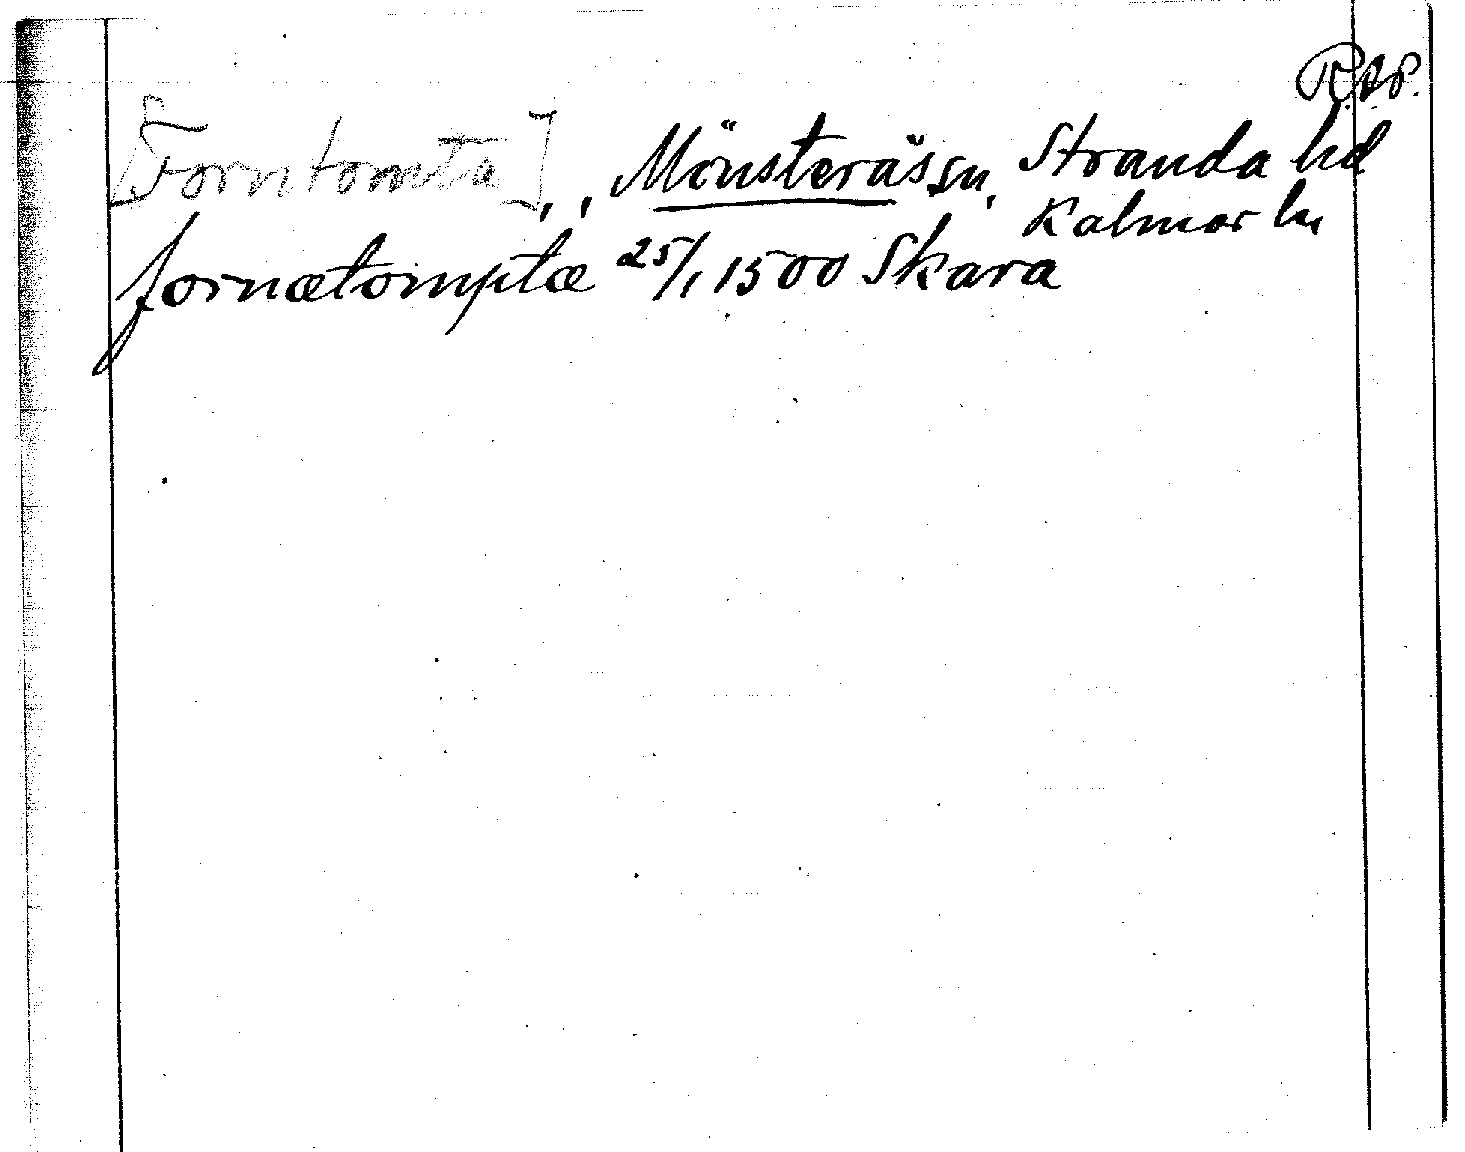 R.A.P.
[Forntomta], , Mönsterås sn, Stranda hd
Kalmar ln
fornætomptæ 25/1 1500 Skara